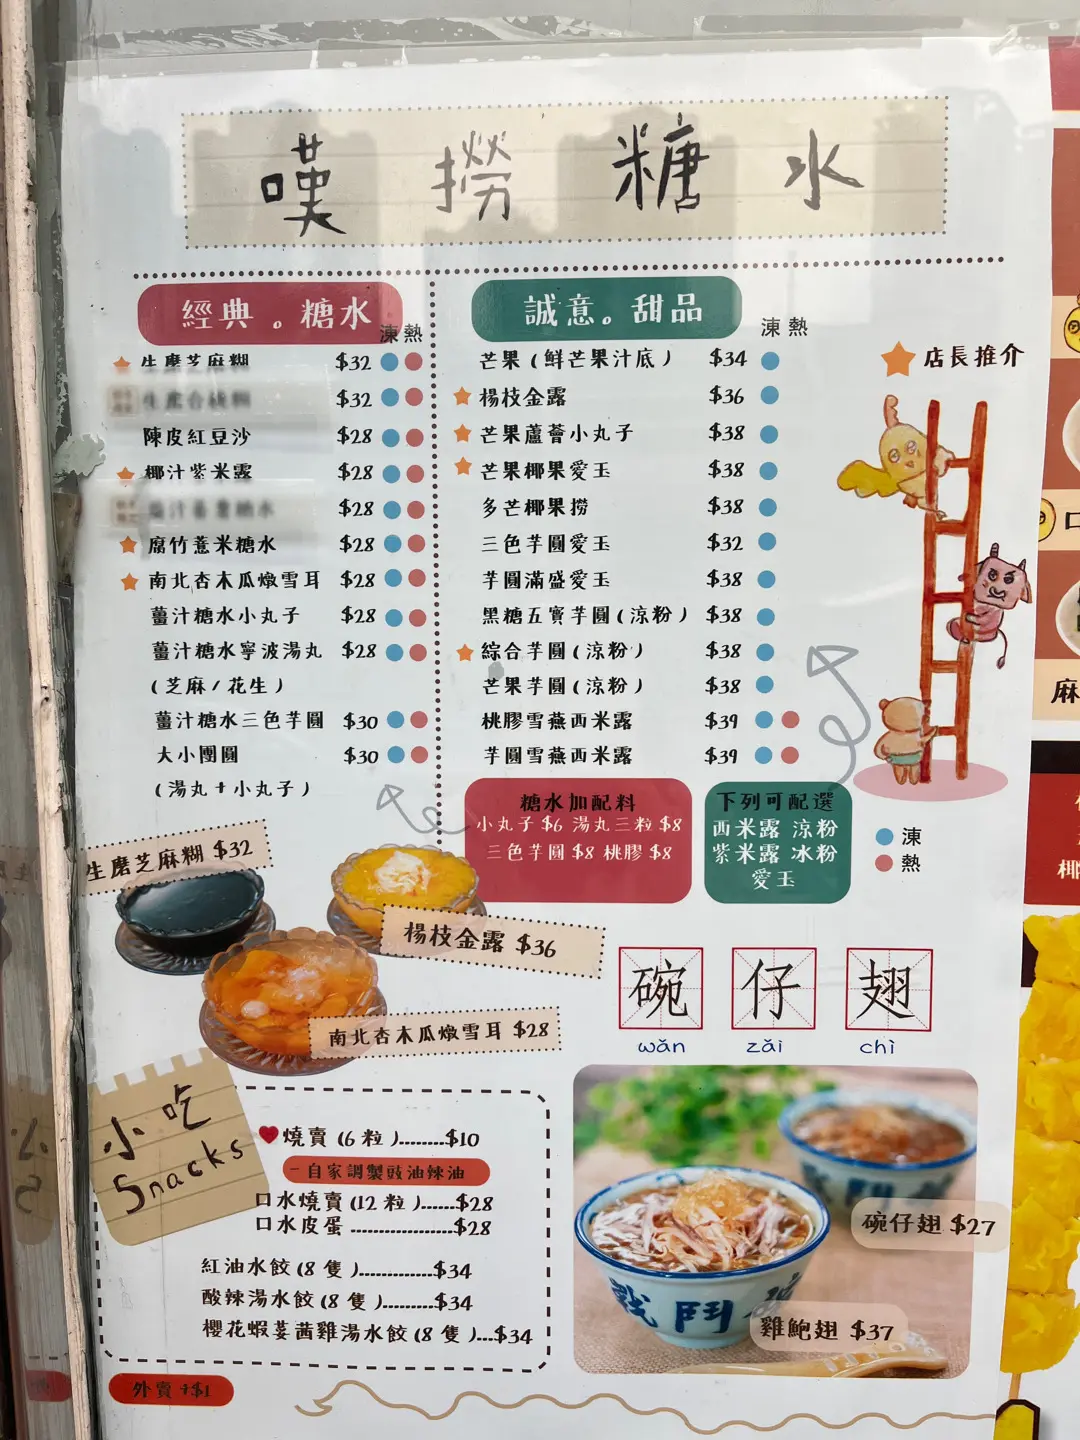 嘆撈糖水
經典。糖水
凍 熱
生磨芝麻糊 $32
$32
陳皮紅豆沙 $28
椰汁紫米露 $28
$28
腐竹薏米糖水 $28
南北杏木瓜燉雪耳 $28
薑汁糖水小丸子 $28
薑汁糖水寧波湯丸 $28
(芝麻/花生)
薑汁糖水三色芋圓 $30
大小團圓 $30
(湯丸+小丸子)
誠意。甜品
凍 熱
芒果(鮮芒果汁底) $34
楊枝金露 $36
芒果蘆薈小丸子 $38
芒果椰果愛玉 $38
多芒椰果撈 $38
三色芋圓愛玉 $32
芋圓滿盛愛玉 $38
黑糖五寶芋圓(涼粉) $38
綜合芋圓(涼粉) $38
芒果芋圓(涼粉) $38
桃膠雪燕西米露 $39
芋圓雪燕西米露 $39
店長推介
糖水加配料
小丸子 $6 湯丸三粒 $8
三色芋圓 $8 桃膠 $8
下列可配選
西米露 涼粉
紫米露 冰粉
愛玉
凍
熱
生磨芝麻糊 $32
楊枝金露 $36
南北杏木瓜燉雪耳 $28
碗仔翅
wǎn zǎi chì
小吃
Snacks
燒賣(6粒)........$10
-自家調製豉油辣油
口水燒賣(12粒)......$28
口水皮蛋..................$28
紅油水餃(8隻).............$34
酸辣湯水餃(8隻).........$34
櫻花蝦薑茜雞湯水餃(8隻)...$34
外賣+$1
碗仔翅 $27
戰鬥
雞鮑翅 $37